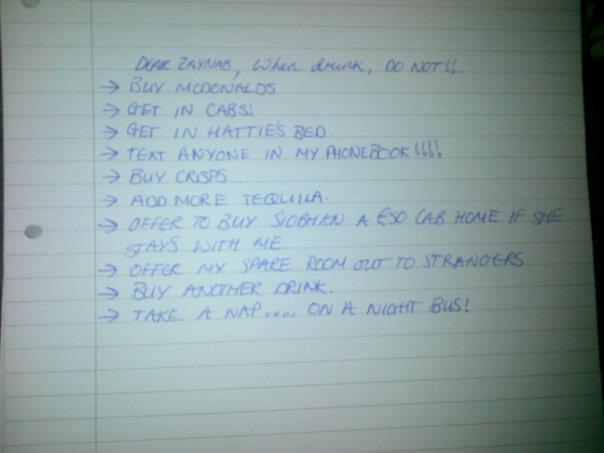 DEAR ZAYNAB, when drunk, DO NOT!!.
→ BUY MCDONALDS
→ GET IN CABS!
→ GET IN HATTIE'S BED
→ TEXT ANYONE IN MY PHONEBOOK!!!!
→ BUY CRISPS
→ ADD MORE TEQUILA.
→ OFFER TO BUY SIOBHAN A £50 CAB HOME IF SHE
STAYS WITH ME
→ OFFER MY SPARE ROOM OUT TO STRANGERS
→ BUY ANOTHER DRINK.
→ TAKE A NAP.... ON A NIGHT BUS!